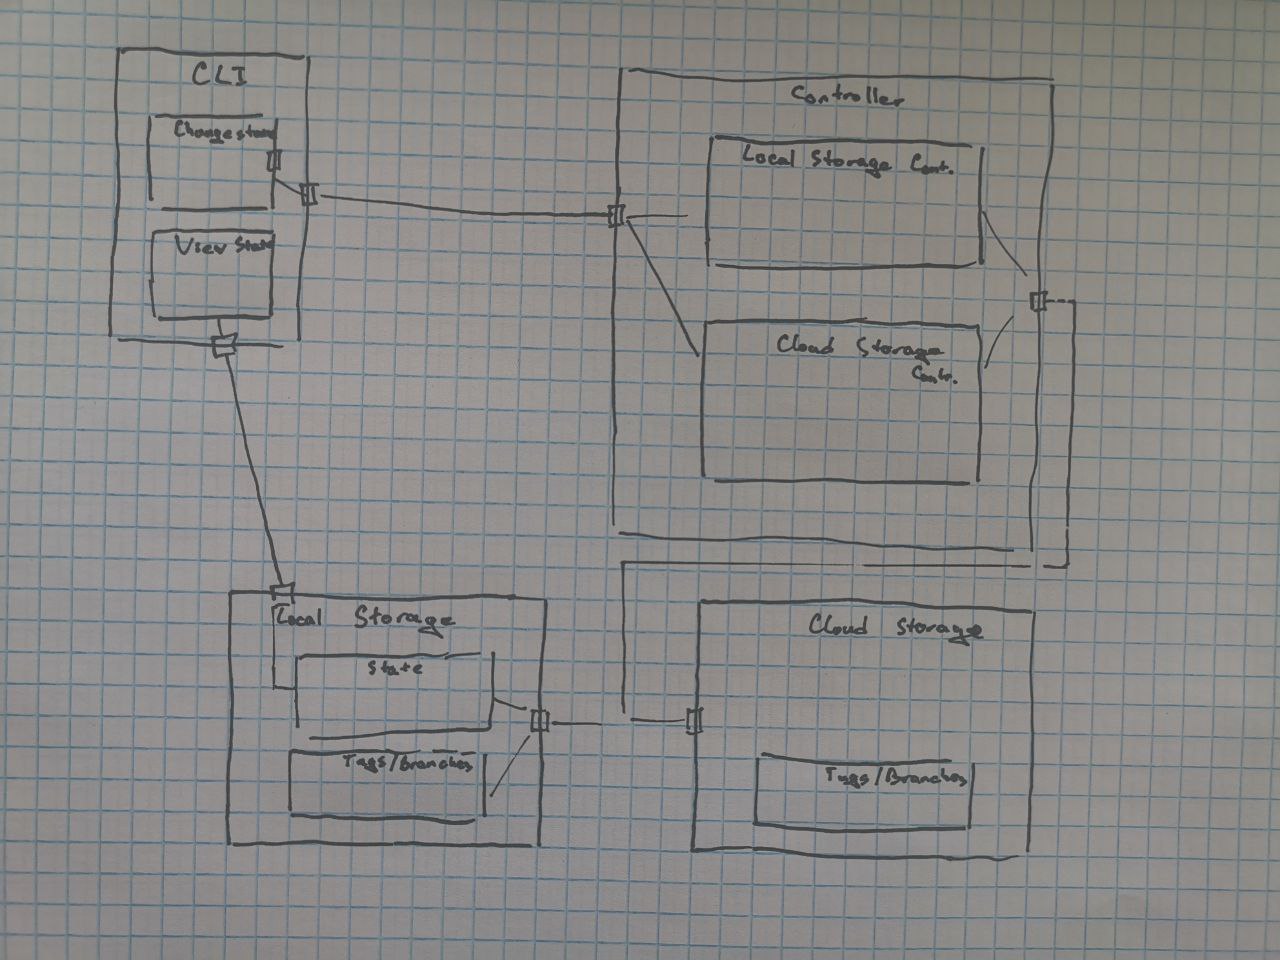 CLI
Change state
View State
Controller
Local Storage Cont.
Cloud Storage
Contr.
Local Storage
State
Tags/Branches
Cloud Storage
Tags/Branches